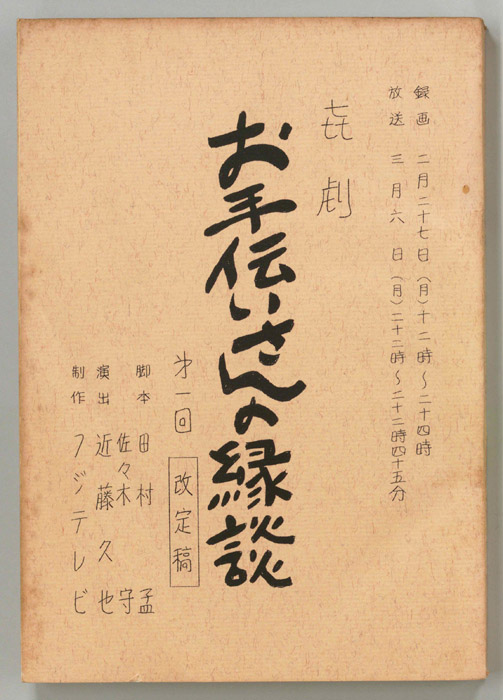 録画 二月二十七日(月)十二時～二十四時
放送 三月六日(月)二十二時～二十二時四十五分
㐂劇
お手伝いさんの縁談
㐧一回
改定稿
脚本 田村 孟
佐々木 守
演出 近藤久也
制作 フジテレビ